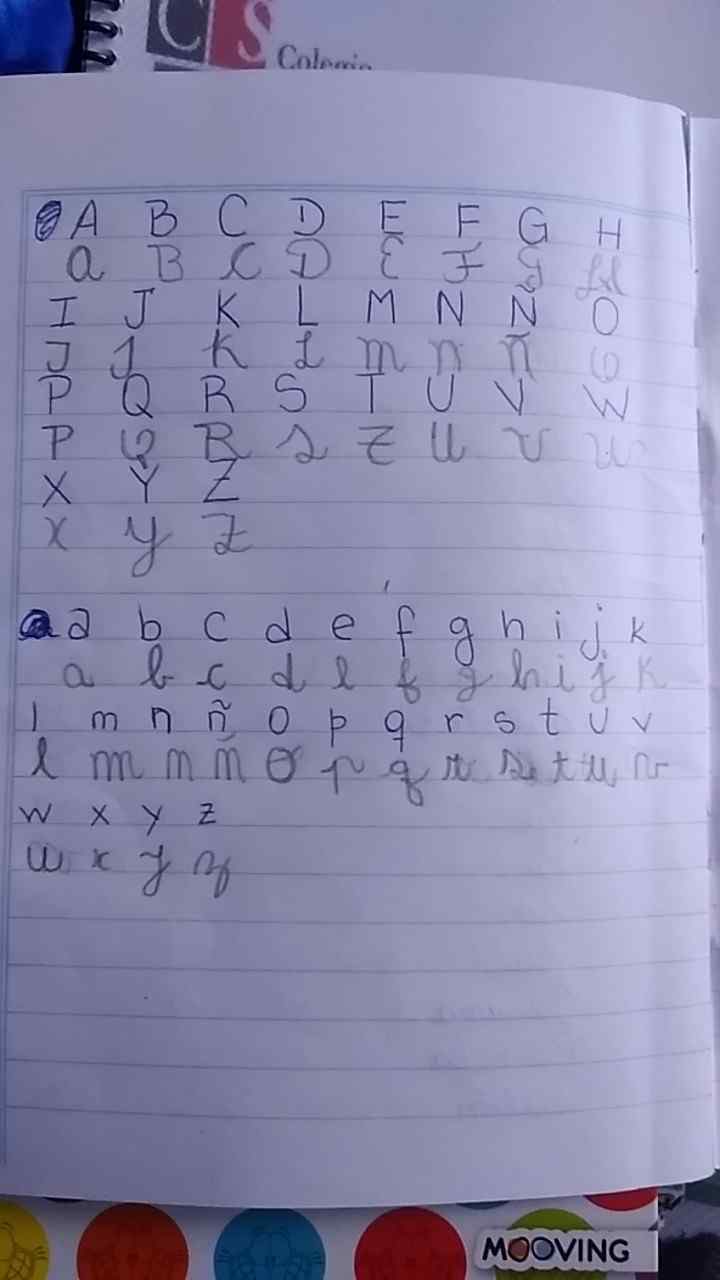 C S
Colegio
A B C D E F G H
a B C D E F G H
I J K L M N Ñ O
I J K L m n ñ O
P Q R S T U V W
P Q R S Z U V W
X Y Z
X y Z
a b c d e f g h i j k
a b c d e f g h i j k
l m n ñ o p q r s t u v
l m n ñ o p q r s t u v
w x y z
w x y z
MOOVING